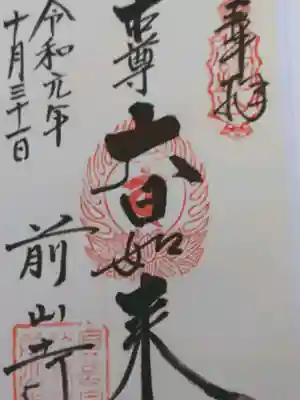 奉拝
本尊
大日如来
前山寺
令和元年
十月三十一日